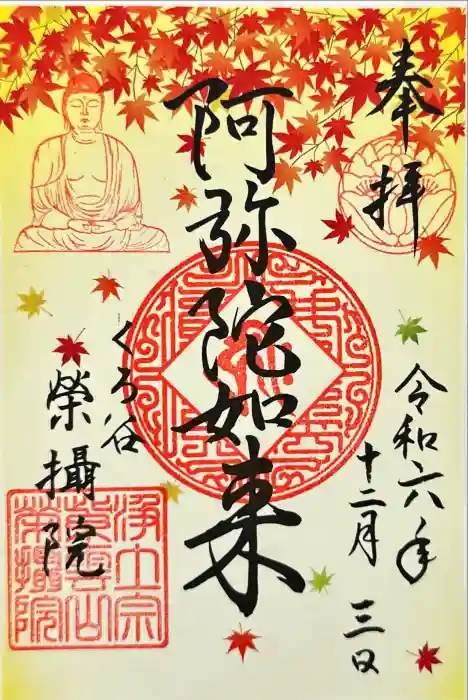 奉拝
令和六年
十二月三日
阿弥陀如来
くろ谷
榮攝院
浄土宗
紫雲山
榮攝院